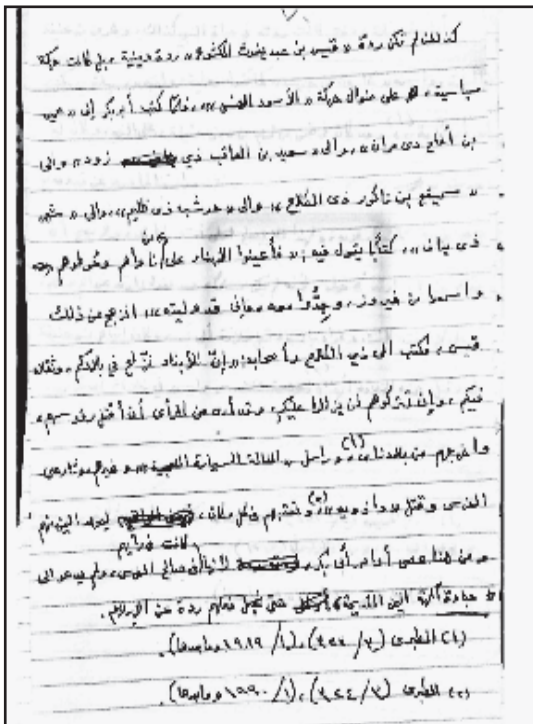 كذلك لم تكن ردة « قيس بن عبد يغوث المكشوح » ردة دينية، بل كانت حركة
سياسية، هو على منوال حركة « الأسود العنسي »، فلما كتب أبو بكر إلى « عمير
بن أفلح ذي مران »، والى « سعيد بن العاقب ذي زود »، والى
« سميفع بن ناكور ذي الكلاع »، والى « حوشب ذي ظليم »، والى « شهر
ذي يناف »، كتابًا يقول فيه: « فأعينوا الأبناء على من ناوأهم وحوطوهم
واسمعوا من فيروز، وجدوا معه، فإني قد وليته »، انزعج من ذلك
قيس، فكتب الى ذي الكلاع وأصحابه: « إن الأبناء نزاع في بلادكم، ونقلاء
فيكم، وإن تتركوهم لن يزالوا عليكم، وقد أرى من الرأي أن أقتل رؤوسهم،
وأخرجهم من بلادنا »(١)، وراسل « الفالة السيارة اللحجية » وغيرهم
الفرس وقتل « داذويه »(٢)، في كل مكان، اليمن
كانت
ومن هنا عصى أوامر أبي بكر لأنها صالح الفرس، ولم يدعو الى
عبادة آلهة اليمن القديمة حتى نجعل فعلهم ردة عن الإسلام.
(١) الطبري (٣/ ٣٢٣)، (١/ ١٩٨٩ وما بعدها).
(٢) الطبري (٣/ ٣٢٤)، (١/ ١٩٩٠ وما بعدها).